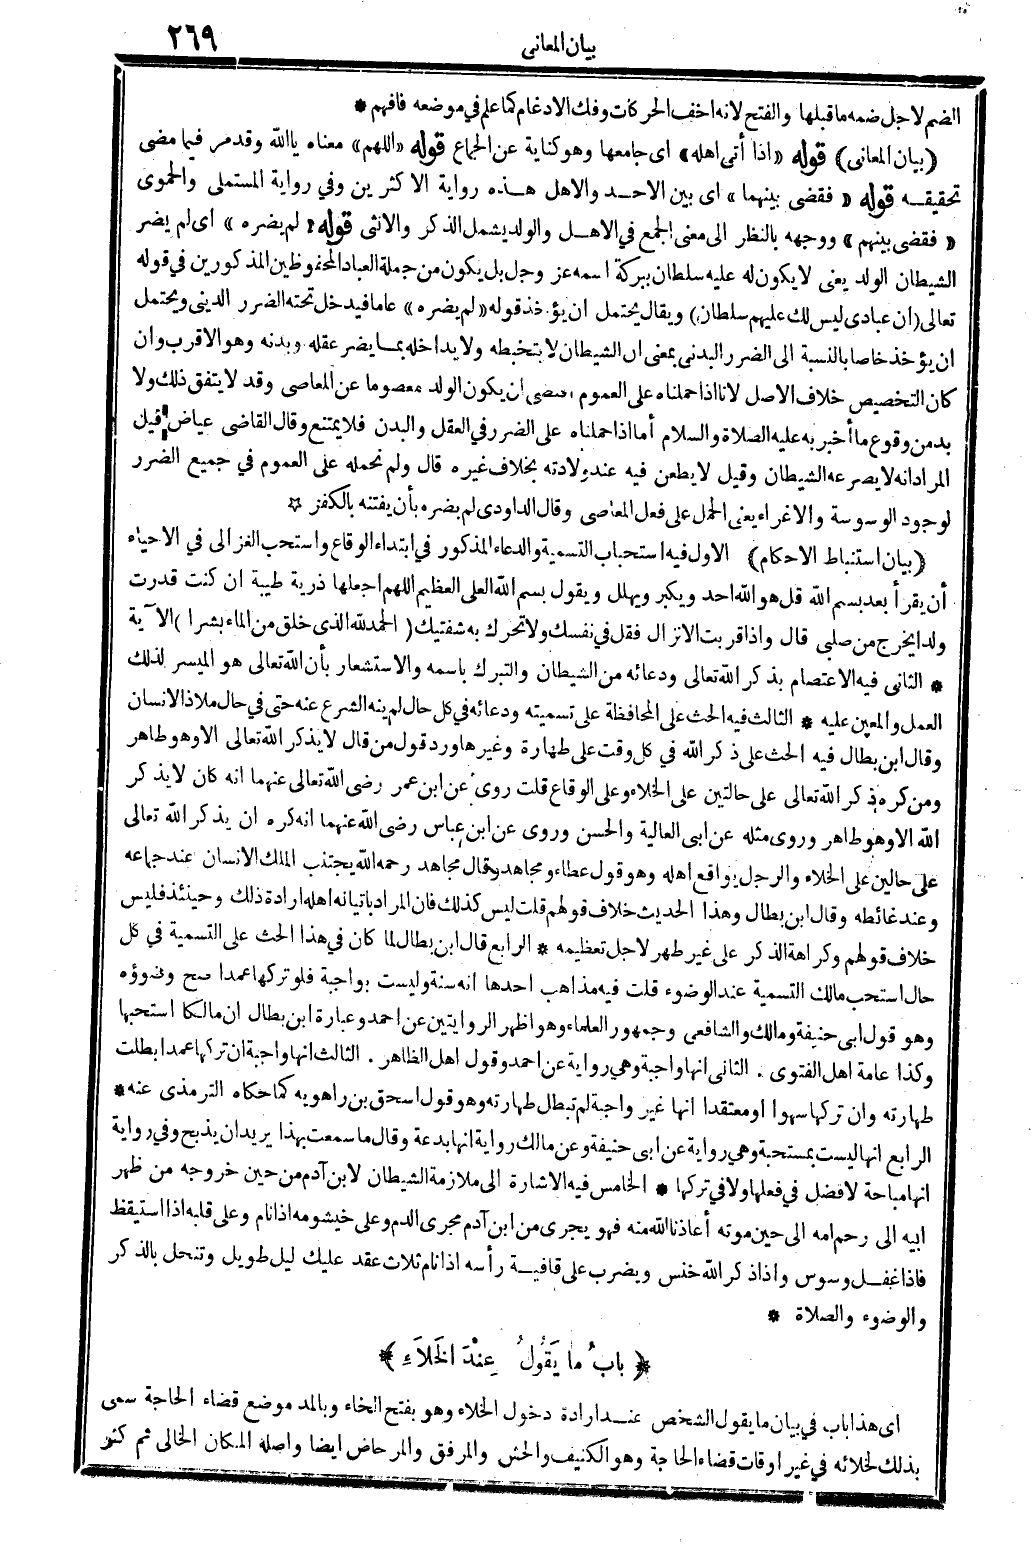 ٢٦٩
بيان المعانى
الضم لاجل ضمه ما قبلها والفتح لانه اخف الحركات وفك الادغام كما علم في موضعه فافهم *
(بيان المعانى) قوله «اذا أتى اهله» اى جامعها وهو كناية عن الجماع قوله «اللهم» معناه يا الله وقد مر فيما مضى
تحقيقه قوله «فقضى بينهما» اى بين الاحد والاهل هذه رواية الاكثرين وفي رواية المستملى والحموى
«فقضى بينهم» ووجهه بالنظر الى معنى الجمع في الاهل والولد يشمل الذكر والانثى قوله «لم يضره» اى لم يضر
الشيطان الولد يعنى لا يكون له عليه سلطان ببركة اسمه عز وجل بل يكون من جملة العباد المحفوظين المذكورين في قوله
تعالى (ان عبادى ليس لك عليهم سلطان) ويقال يحتمل ان يؤخذ قوله «لم يضره» عاما فيدخل تحته الضرر الدينى ويحتمل
ان يؤخذ خاصا بالنسبة الى الضرر البدنى بمعنى ان الشيطان لا يتخبطه ولا يداخله بما يضر عقله وبدنه وهو الاقرب وان
كان التخصيص خلاف الاصل لانا اذا حملناه على العموم اقتضى ان يكون الولد معصوما عن المعاصى وقد لا يتفق ذلك ولا
بد من وقوع ما أخبر به عليه الصلاة والسلام أما اذا حملناه على الضرر في العقل والبدن فلا يمتنع وقال القاضى عياض قيل
المراد انه لا يصرعه الشيطان وقيل لا يطعن فيه عند ولادته بخلاف غيره قال ولم نحمله على العموم في جميع الضرر
لوجود الوسوسة والاغراء يعنى الحمل على فعل المعاصى وقال الداودى لم يضره بأن يفتنه بالكفر ☆
(بيان استنباط الاحكام) الاول فيه استحباب التسمية والدعاء المذكور في ابتداء الوقاع واستحب الغزالى في الاحياء
أن يقرأ بعد بسم الله قل هو الله احد ويكبر ويهلل ويقول بسم الله العلى العظيم اللهم اجعلها ذرية طيبة ان كنت قدرت
ولدا يخرج من صلبى قال واذا قربت الانزال فقل في نفسك ولا تحرك به شفتيك (الحمد لله الذى خلق من الماء بشرا) الآية
* الثانى فيه الاعتصام بذكر الله تعالى ودعائه من الشيطان والتبرك باسمه والاستشعار بأن الله تعالى هو الميسر لذلك
العمل والمعين عليه * الثالث فيه الحث على المحافظة على تسميته ودعائه في كل حال لم ينه الشرع عنه حتى في حال ملاذ الانسان
وقال ابن بطال فيه الحث على ذكر الله في كل وقت على طهارة وغيرها ورد قول من قال لا يذكر الله تعالى الا وهو طاهر
ومن كره ذكر الله تعالى على حالتين على الخلاء وعلى الوقاع قلت روى عن ابن عمر رضى الله تعالى عنهما انه كان لا يذكر
الله الا وهو طاهر وروى مثله عن ابى العالية والحسن وروى عن ابن عباس رضى الله عنهما انه كره ان يذكر الله تعالى
على حالين على الخلاء والرجل يواقع اهله وهو قول عطاء ومجاهد وقال مجاهد رحمه الله يجتنب الملك الانسان عند جماعه
وعند غائطه وقال ابن بطال وهذا الحديث خلاف قولهم قلت ليس كذلك فان المراد باتيانه اهله ارادة ذلك وحينئذ فليس
خلاف قولهم وكراهة الذكر على غير طهر لاجل تعظيمه * الرابع قال ابن بطال لما كان في هذا الحث على التسمية في كل
حال استحب مالك التسمية عند الوضوء قلت فيه مذاهب احدها انه سنة وليست بواجبة فلو تركها عمدا صح وضوؤه
وهو قول ابى حنيفة ومالك والشافعى وجمهور العلماء وهو اظهر الروايتين عن احمد وعبارة ابن بطال ان مالكا استحبها
وكذا عامة اهل الفتوى . الثانى انها واجبة وهى رواية عن احمد وقول اهل الظاهر . الثالث انها واجبة ان تركها عمدا بطلت
طهارته وان تركها سهوا او معتقدا انها غير واجبة لم تبطل طهارته وهو قول اسحق بن راهويه كما حكاه الترمذى عنه *
الرابع انها ليست بمستحبة وهى رواية عن ابى حنيفة وعن مالك رواية انها بدعة وقال ما سمعت بهذا يريد ان يذبح وفي رواية
انها مباحة لا فضل في فعلها ولا في تركها * الخامس فيه الاشارة الى ملازمة الشيطان لابن آدم من حين خروجه من ظهر
ابيه الى رحم امه الى حين موته أعاذنا الله منه فهو يجرى من ابن آدم مجرى الدم وعلى خيشومه اذا نام وعلى قلبه اذا استيقظ
فاذا غفل وسوس واذا ذكر الله خنس ويضرب على قافية رأسه اذا نام ثلاث عقد عليك ليل طويل وتنحل بالذكر
والوضوء والصلاة *
﴿ بابُ ما يَقُولُ عِنْدَ الخَلَاءِ ﴾
اى هذا باب في بيان ما يقول الشخص عند ارادة دخول الخلاء وهو بفتح الخاء وبالمد موضع قضاء الحاجة سمى
بذلك لخلائه في غير اوقات قضاء الحاجة وهو الكنيف والحش والمرفق والمرحاض ايضا واصله المكان الخالى ثم كثر